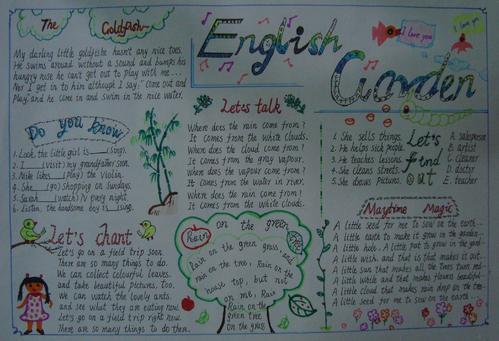 The Goldfish
My darling little goldfish hasn't any nice toes.
He swims around without a sound and bumps his
hungry nose he can't get out to play with me...
Nor I get in to him although I say: "Come out and
Play" and he come in and swim in the nice water.
English
Garden
I love you
I love you
Do you know
1. Look, the little girl is sing.
2. I (visit) my grandfather soon.
3. Mike likes (play) the violin.
4. She (go) shopping on Sundays.
5. Sarah (watch) TV every night.
6. Listen, the handsome boy is sing.
Let's talk
Where does the rain come from?
It comes from the white clouds.
Where does the cloud come from?
It comes from the gray vapour.
Where does the vapour come from?
It comes from the water in river.
Where does the rain come from?
It comes from the white clouds.
Let's find out
1. She sells things.
2. He helps sick people.
3. He teaches lessons.
4. She cleans streets.
5. She draws pictures.
A. salesperson
B. artist
C. cleaner
D. doctor
E. teacher
Let's chant
Let's go on a field trip soon.
There are so many things to do.
We can collect colourful leaves,
and take beautiful pictures, too.
We can watch the lovely ants.
and see what they are eating now.
Let's go on a field trip right now.
There are so many things to do then.
Rain on the green
Rain on the green grass and
rain on the tree, Rain on the
house top, but not
on me, Rain
Rain on the
green tree
On the grass
Maytime Magic
A little seed for me to sow...
A little earth to make it grow
A little hole, A little pat
A little wish, and that is that
A little sun that makes
A little while and that makes flowers
A little cloud that makes rain drop on the
A little seed for me to sow